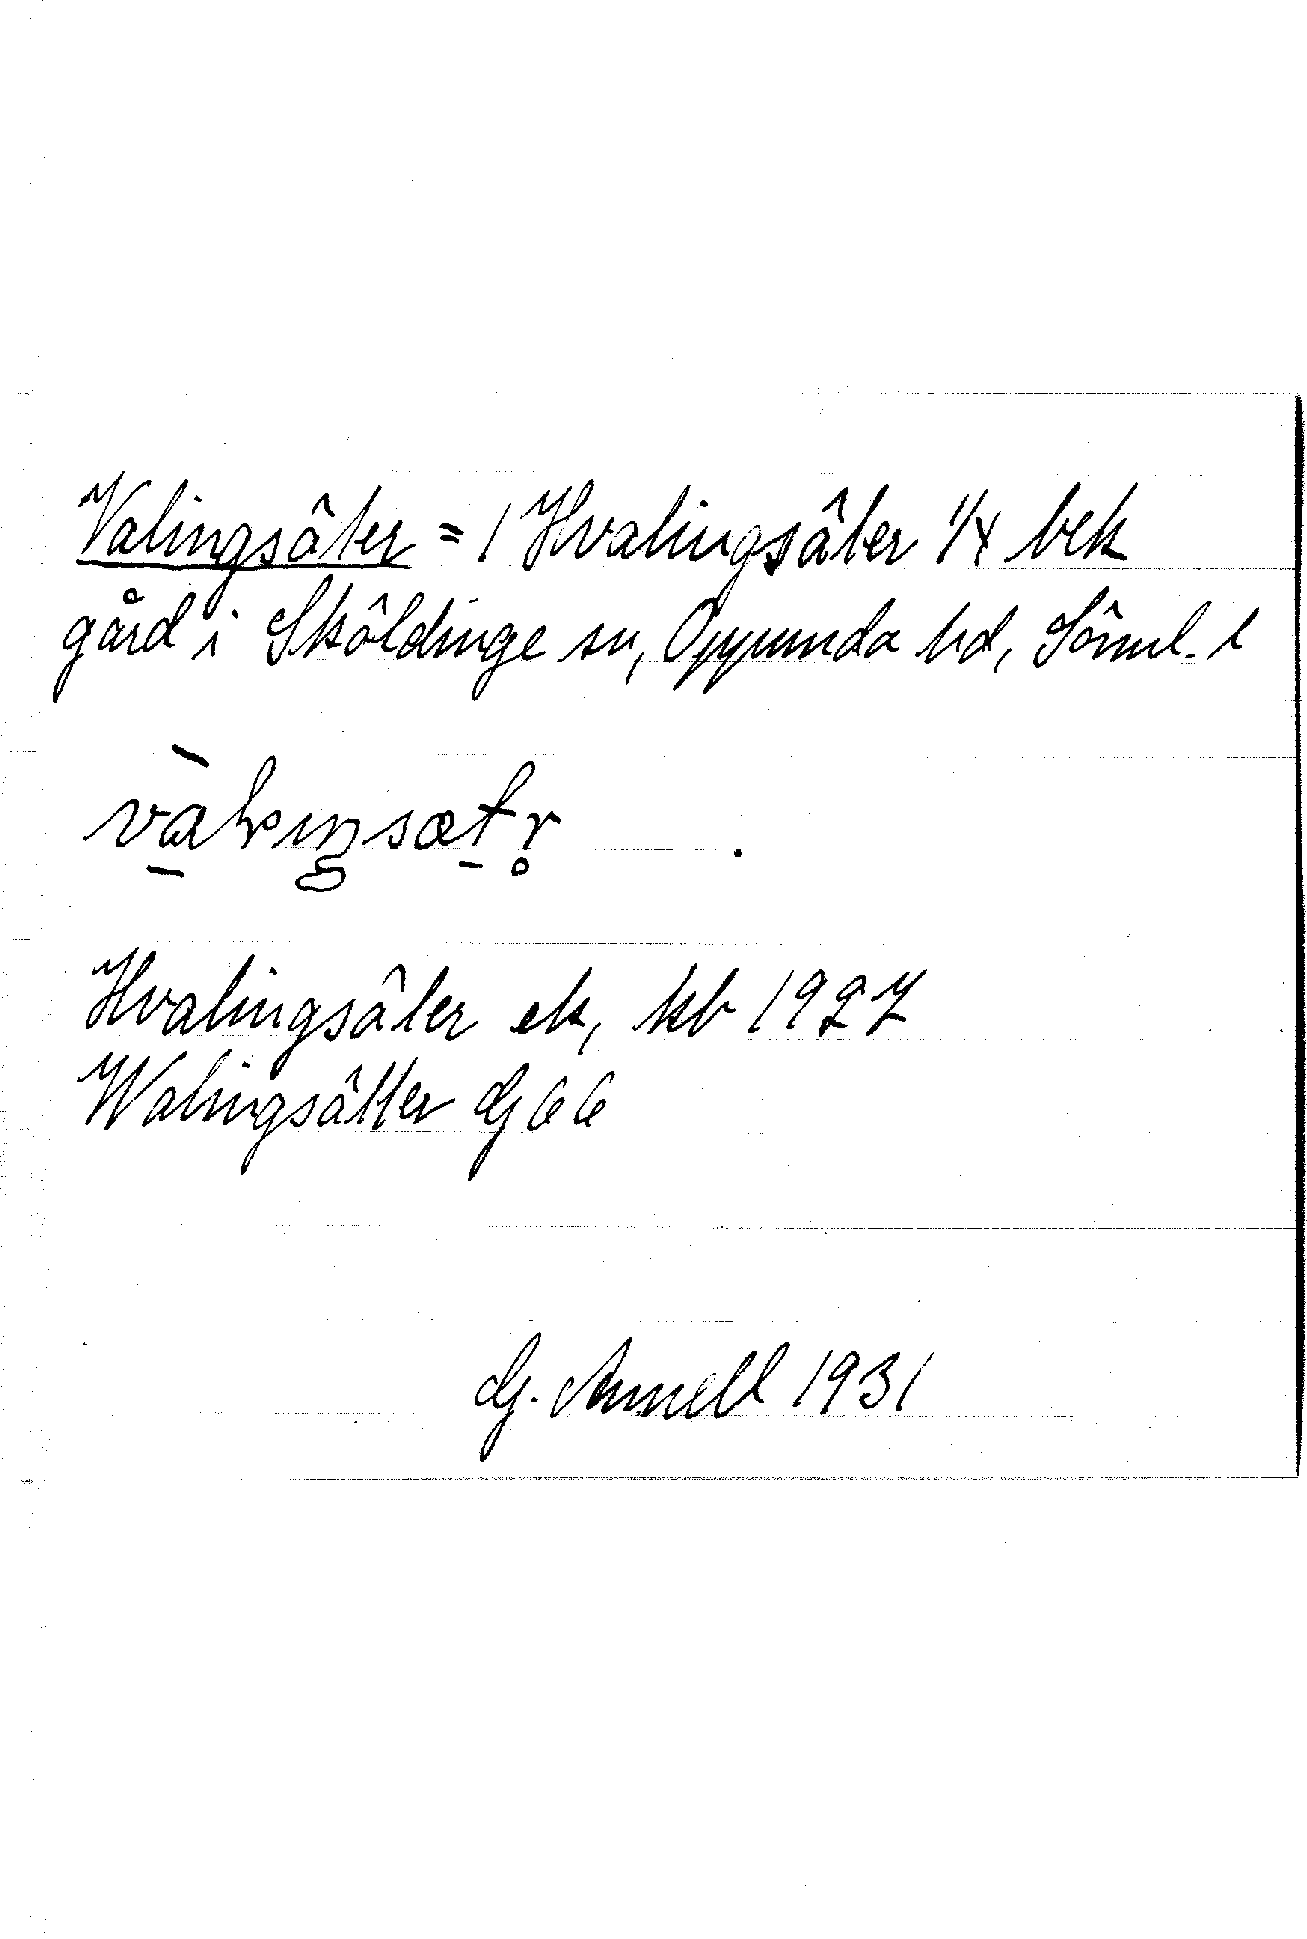 Valingsäter = 1 Hvalingsäter 1/4 bek
gård i Sköldinge sn, Oppunda hd, Söml. l
Hvalingsäter ek, kb 1927
Walingsätter G 66
G. Annell 1931